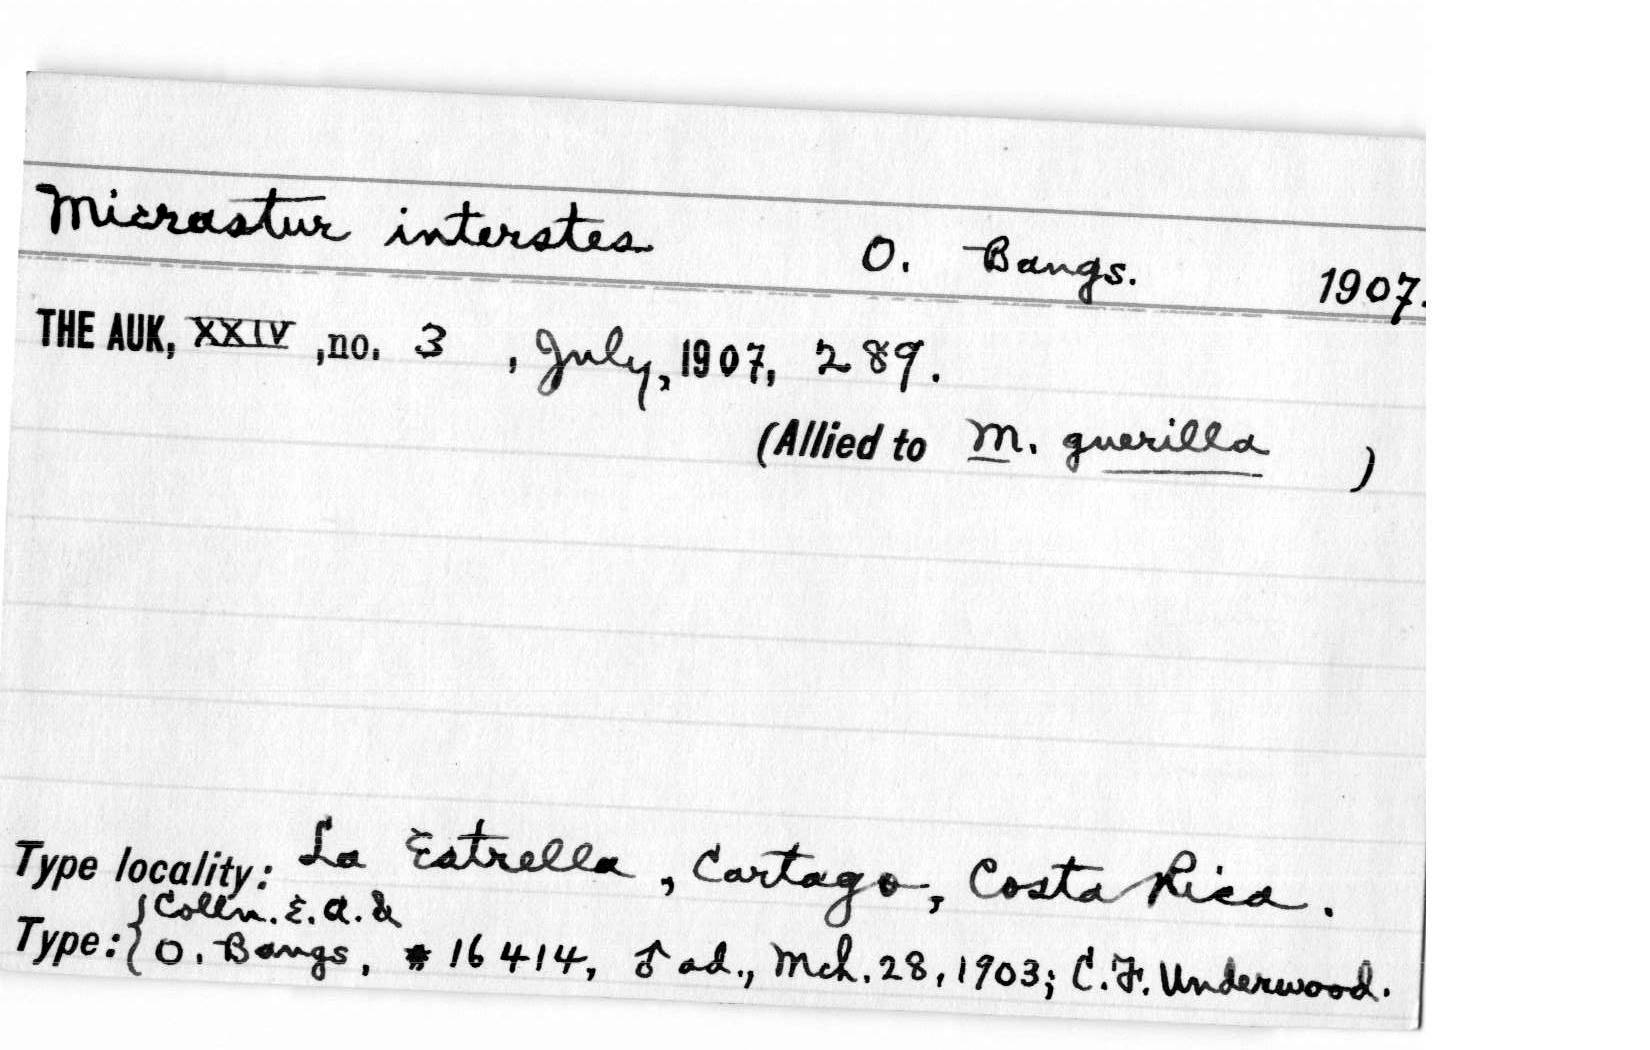 Micrastur interstes O. Bangs. 1907.
THE AUK, XXIV, no. 3, July, 1907, 289.
(Allied to M. guerilla)
Type locality: La Estrella, Cartago, Costa Rica.
Type: {Colln. E. A. &
O. Bangs, # 16414, ♂ ad., Mch. 28, 1903; C. F. Underwood.